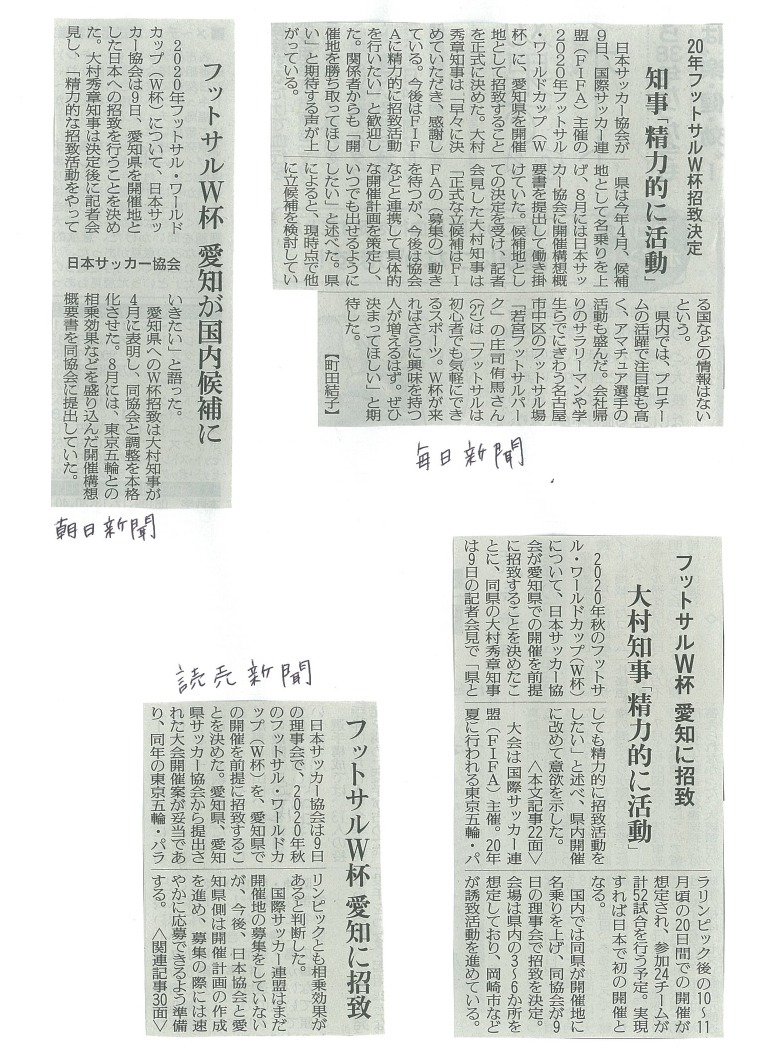 20年フットサルW杯招致決定
知事「精力的に活動」
日本サッカー協会が
9日、国際サッカー連
盟(FIFA)主催の
2020年フットサル
・ワールドカップ(W
杯)に、愛知県を開催
地として招致すること
を正式に決めた。大村
秀章知事は「早々に決
めていただき、感謝し
ている。今後はFIF
Aに精力的に招致活動
を行いたい」と歓迎し
た。関係者からも「開
催地を勝ち取ってほし
い」と期待する声が上
がっている。
県は今年4月、候補
地として名乗りを上
げ、8月には日本サッ
カー協会に開催構想概
要書を提出して働き掛
けていた。候補地とし
ての決定を受け、記者
会見した大村知事は
「正式な立候補はFI
FAの(募集の)動き
を待つが、今後は協会
などと連携して具体的
な開催計画を策定し、
いつでも出せるように
したい」と述べた。県
によると、現時点で他
に立候補を検討してい
る国などの情報はない
という。
県内では、プロチー
ムの活躍で注目度も高
く、アマチュア選手の
活動も盛んだ。会社帰
りのサラリーマンや学
生らでにぎわう名古屋
市中区のフットサル場
「若宮フットサルパー
ク」の庄司侑馬さん
は「フットサルは
初心者でも気軽にでき
るスポーツ。W杯が来
ればさらに興味を持つ
人が増えるはず。ぜひ
決まってほしい」と期
待した。
【町田結子】
毎日新聞
フットサルW杯 愛知が国内候補に
日本サッカー協会
2020年フットサル・ワールド
カップ(W杯)について、日本サッ
カー協会は9日、愛知県を開催地と
した日本への招致を行うことを決め
た。大村秀章知事は決定後に記者会
見し、「精力的な招致活動をやって
いきたい」と語った。
愛知県へのW杯招致は大村知事が
4月に表明し、同協会と調整を本格
化させた。8月には、東京五輪との
相乗効果などを盛り込んだ開催構想
概要書を同協会に提出していた。
朝日新聞
フットサルW杯 愛知に招致
大村知事「精力的に活動」
2020年秋のフットサ
ル・ワールドカップ(W杯)
について、日本サッカー協
会が愛知県での開催を前提
に招致することを決めたこ
とに、同県の大村秀章知事
は9日の記者会見で「県と
しても精力的に招致活動を
したい」と述べ、県内開催
に改めて意欲を示した。
〈本文記事22面〉
大会は国際サッカー連
盟(FIFA)主催。20年
夏に行われる東京五輪・パ
ラリンピック後の10~11
月頃の20日間での開催が
想定され、参加24チームが
計52試合を行う予定。実現
すれば日本で初の開催と
なる。
国内では同県が開催地に
名乗りを上げ、同協会が9
日の理事会で招致を決定。
会場は県内の3~6か所を
想定しており、岡崎市など
が誘致活動を進めている。
読売新聞
フットサルW杯 愛知に招致
日本サッカー協会は9日
の理事会で、2020年秋
のフットサル・ワールドカ
ップ(W杯)を、愛知県で
の開催を前提に招致するこ
とを決めた。愛知県、愛知
県サッカー協会から提出さ
れた大会開催案が妥当であ
り、同年の東京五輪・パラ
リンピックとも相乗効果が
あると判断した。
国際サッカー連盟はまだ
開催地の募集をしていない
が、今後、日本協会と愛
知県側は開催計画の作成
を進め、募集の際には速
やかに応募できるよう準備
する。〈関連記事30面〉